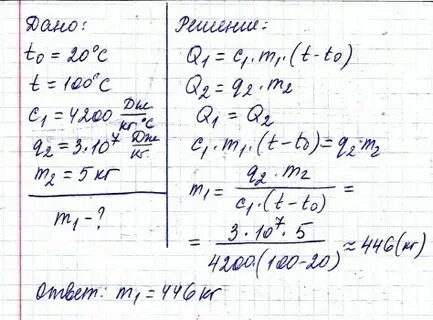 Дано:
t₀ = 20°C
t = 100°C
c₁ = 4200 Дж/кг°C
q₂ = 3·10⁷ Дж/кг
m₂ = 5 кг
m₁ - ?
Решение:
Q₁ = c₁·m₁·(t-t₀)
Q₂ = q₂·m₂
Q₁ = Q₂
c₁·m₁·(t-t₀) = q₂·m₂
m₁ = q₂·m₂ / c₁·(t-t₀) =
= 3·10⁷·5 / 4200(100-20) ≈ 446 (кг)
Ответ: m₁ = 446 кг